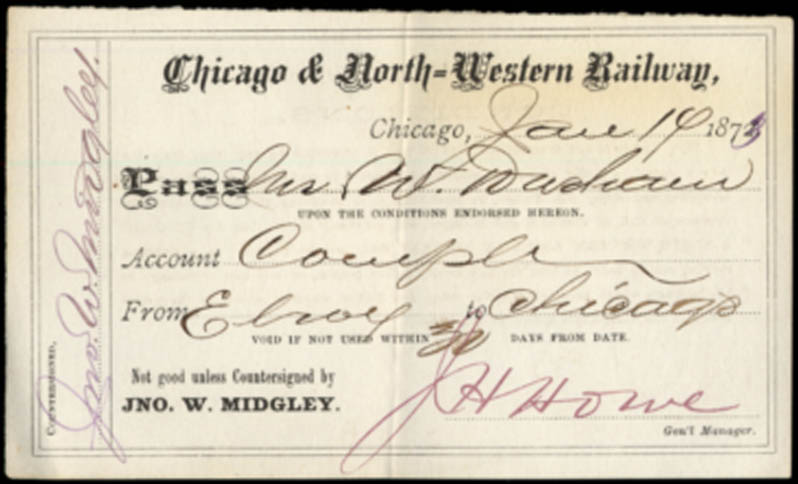 Chicago & North=Western Railway,
Chicago, Jan 14 1873
Pass Mr. W.
UPON THE CONDITIONS ENDORSED HEREON.
Account Compl
From Elroy to Chicago
VOID IF NOT USED WITHIN 30 DAYS FROM DATE.
Not good unless Countersigned by
JNO. W. MIDGLEY.
J H Howe
Gen'l Manager.
COUNTERSIGNED,
Jno. W. Midgley.